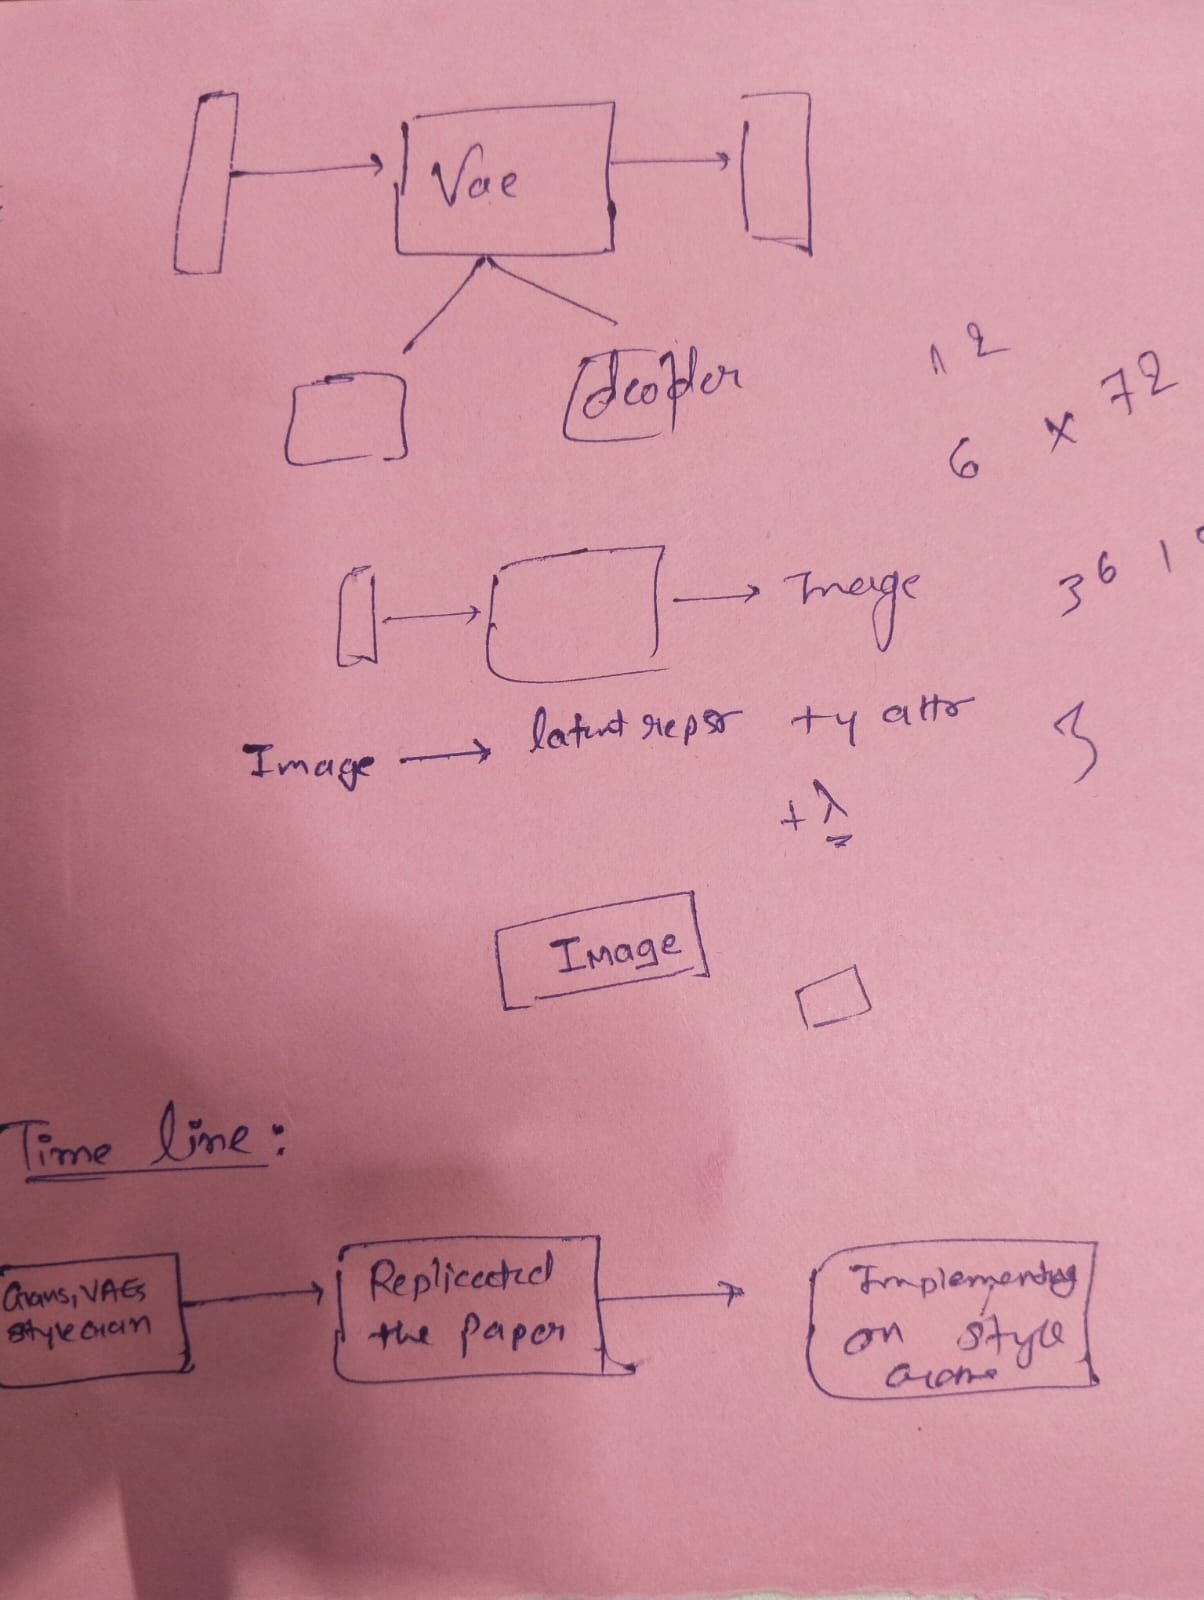 Vae
12
6 x 72
Image
36 1
Image → latent repr + y attr
+ λ
Image
Time line:
Gans, VAEs
style Gan
Replicated
the paper
Implementing
on style